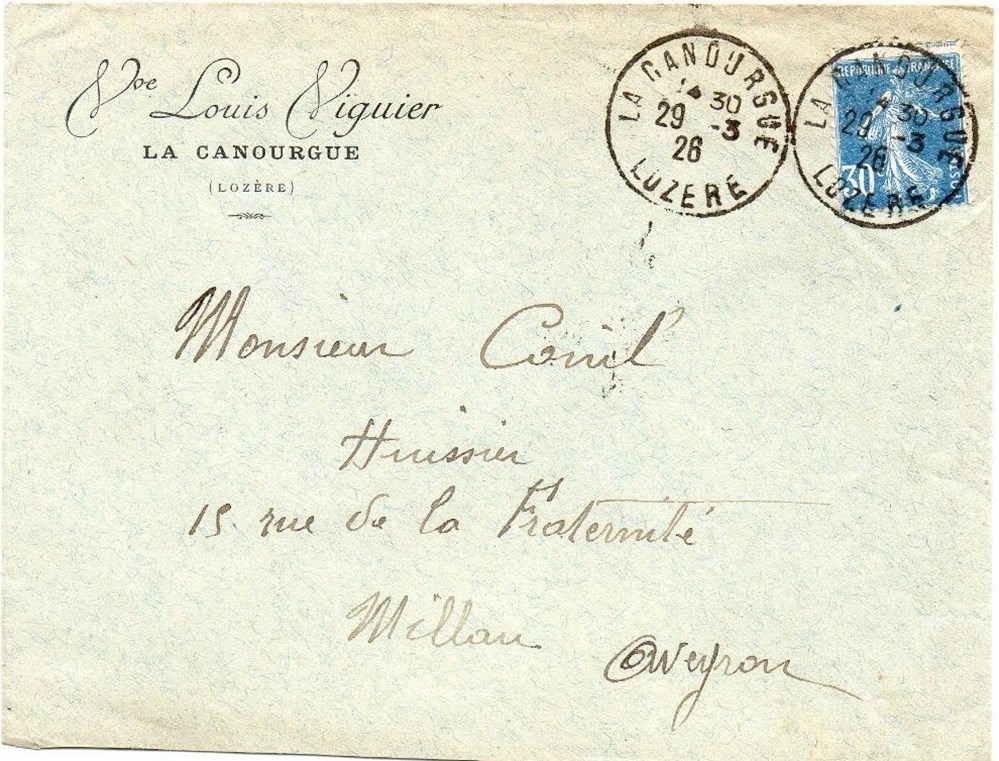 Vve Louis Viguier
LA CANOURGUE
(LOZÈRE)
LA CANOURGUE
14 30
29 -3
26
LOZERE
REPUBLIQUE FRANÇAISE
30
LA CANOURGUE
14 30
29 -3
26
LOZERE
Monsieur Conil
Huissier
15 rue de la Fraternité
Millau
Aveyron